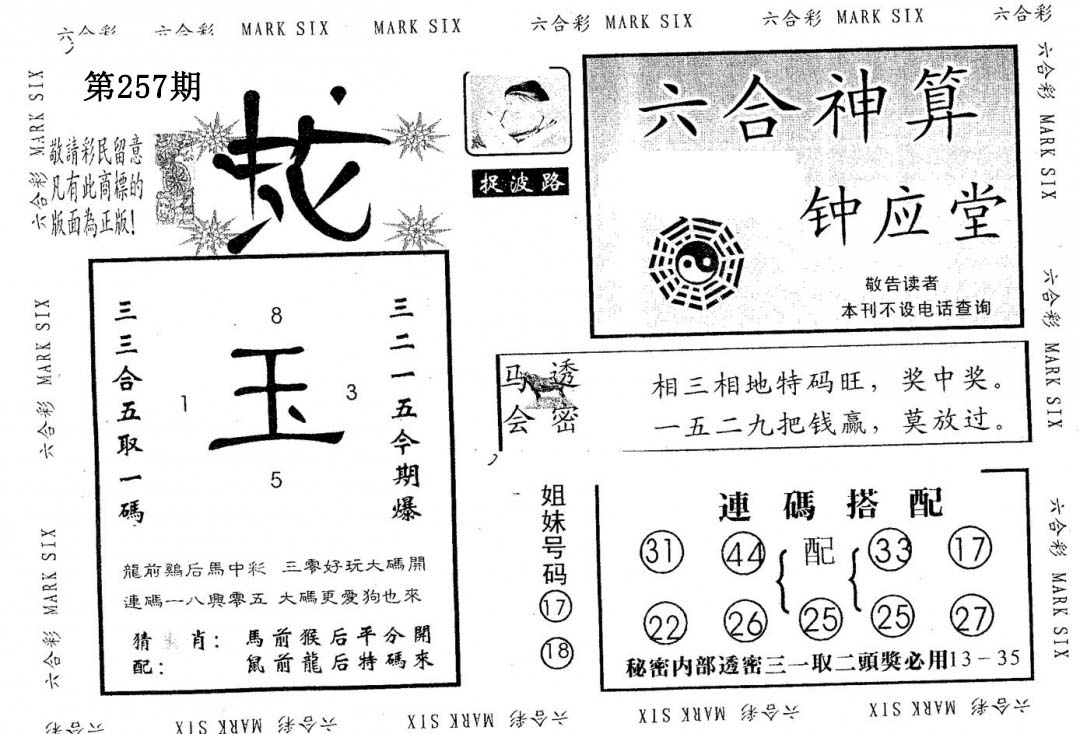 六合彩 六合彩 MARK SIX MARK SIX 六合彩 MARK SIX 六合彩 MARK SIX 六合彩
第257期
敬請彩民留意
凡有此商標的
版面為正版!
蛇
捉波路
六合神算
钟应堂
敬告读者
本刊不设电话查询
三三合五取一碼
8
1
玉
3
5
三二一五今期爆
龍前鷄后馬中彩 三零好玩大碼開
連碼一八與零五 大碼更愛狗也來
猜生肖: 馬前猴后平分開
配: 鼠前龍后特碼來
马会
透密
相三相地特码旺,奖中奖。
一五二九把钱赢,莫放过。
姐妹号码
17
18
連碼搭配
31 44 配 33 17
22 26 25 25 27
秘密内部透密三一取二頭獎必用13-35
六合彩 MARK SIX
六合彩 MARK SIX
六合彩 MARK SIX
六合彩 MARK SIX
六合彩 MARK SIX
六合彩 MARK SIX
六合彩 六合彩 MARK SIX 六合彩 MARK SIX 六合彩 MARK SIX 六合彩 MARK SIX